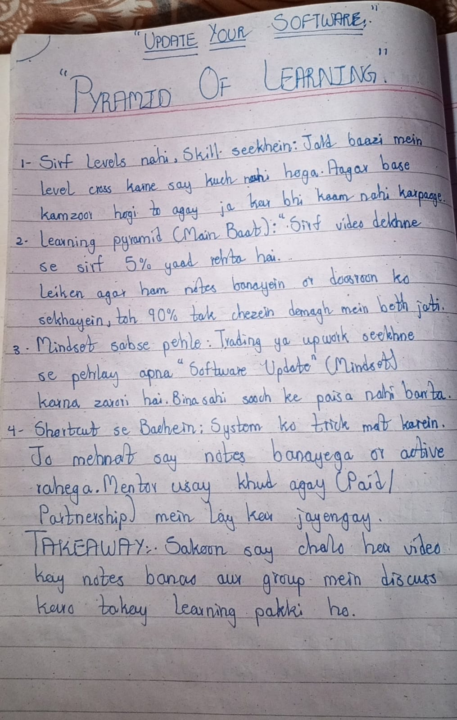 "UPDATE YOUR SOFTWARE."
"PYRAMID OF LEARNING."
1- Sirf Levels nahi, Skill seekhein: Jald baazi mein
level cross karne say kuch nahi hoga. Aagar base
kamzoor hogi to agay ja kar bhi kaam nahi karpaoge.
2- Learning pyramid (Main Baat): "Sirf video dekhne
se sirf 5% yaad rehta hai.
Leiken agar ham notes banayein or doosroon ko
sekhayein, toh 90% tak chezein demagh mein beth jati.
3- Mindset sabse pehle: Trading ya upwork seekhne
se pehlay apna "Software Update" (Mindset)
karna zarori hai. Bina sahi soch ke paisa nahi banta.
4- Shortcut se Bachein: System ko trick mat karein.
Jo mehnat say notes banayega or active
rahega. Mentor usay khud agay (Paid/
Partnership) mein lay kar jayengay.
TAKEAWAY:. Sakoon say chalo har video
kay notes banao aur group mein discuss
karo takay learning pakki ho.